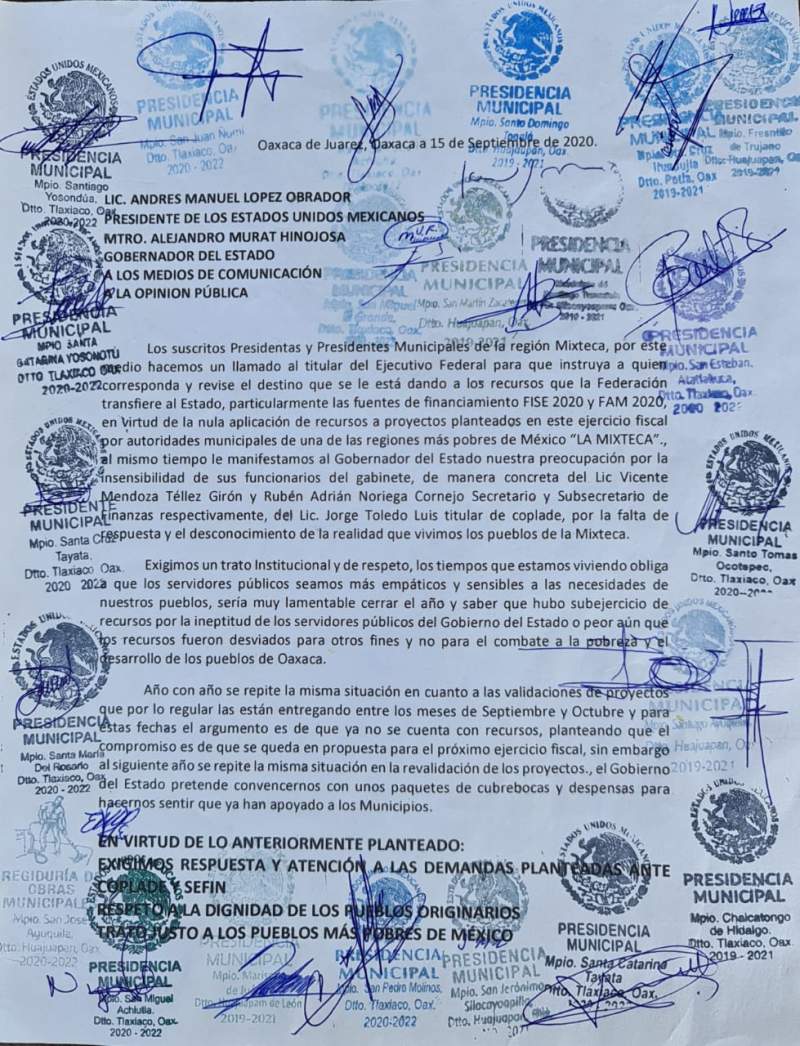 ESTADOS UNIDOS MEXICANOS
PRESIDENCIA
MUNICIPAL
Mpio. Santiago
Yosondúa,
Dtto. Tlaxiaco, Oax
2020-2022
PRESIDENCIA
MUNICIPAL
Mpio. San Juan Ñumi
Dtto. Tlaxiaco, Oax
2020 - 2022
PRESIDENCIA
MUNICIPAL
Mpio. Santo Domingo
Tonalá
Dtto. Huajuapan, Oax.
2019 - 2021
Dtto. Putla, Oax
2019-2021
PRESIDENCIA
MUNICIPAL
Mpio. Fresnillo
de Trujano
Dtto. Huajuapan, Oax.
2019-2021
Oaxaca de Juarez, Oaxaca a 15 de Septiembre de 2020.
LIC. ANDRES MANUEL LOPEZ OBRADOR
PRESIDENTE DE LOS ESTADOS UNIDOS MEXICANOS
MTRO. ALEJANDRO MURAT HINOJOSA
GOBERNADOR DEL ESTADO
A LOS MEDIOS DE COMUNICACIÓN
A LA OPINION PÚBLICA
PRESIDENCIA
MUNICIPAL
MPIO SANTA
CATARINA YOSONOTÚ
DTTO TLAXIACO OAX
2020-2022
PRESIDENCIA
MUNICIPAL
Dtto. Tlaxiaco, Oax.
PRESIDENCIA
MUNICIPAL
Mpio. San Martín
Dtto. Huajuapan, Oax.
PRESIDENCIA
MUNICIPAL
2019 - 2021
PRESIDENCIA
MUNICIPAL
Mpio. San Esteban
Atatlahuca,
Dtto. Tlaxiaco, Oax.
2020 2022
Los suscritos Presidentas y Presidentes Municipales de la región Mixteca, por este
medio hacemos un llamado al titular del Ejecutivo Federal para que instruya a quien
corresponda y revise el destino que se le está dando a los recursos que la Federación
transfiere al Estado, particularmente las fuentes de financiamiento FISE 2020 y FAM 2020,
en virtud de la nula aplicación de recursos a proyectos planteados en este ejercicio fiscal
por autoridades municipales de una de las regiones más pobres de México “LA MIXTECA”.,
al mismo tiempo le manifestamos al Gobernador del Estado nuestra preocupación por la
insensibilidad de sus funcionarios del gabinete, de manera concreta del Lic Vicente
Mendoza Téllez Girón y Rubén Adrián Noriega Cornejo Secretario y Subsecretario de
Finanzas respectivamente, del Lic. Jorge Toledo Luis titular de coplade, por la falta de
respuesta y el desconocimiento de la realidad que vivimos los pueblos de la Mixteca.
PRESIDENTE
MUNICIPAL
Mpio. Santa Cruz
Tayata.
Dtto. Tlaxiaco Oax.
2020 2022
ESTADOS UNIDOS MEXICANOS
PRESIDENCIA
MUNICIPAL
Mpio. Santo Tomas
Ocotepec,
Dtto. Tlaxiaco, Oax
Exigimos un trato Institucional y de respeto, los tiempos que estamos viviendo obliga
a que los servidores públicos seamos más empáticos y sensibles a las necesidades de
nuestros pueblos, sería muy lamentable cerrar el año y saber que hubo subejercicio de
recursos por la ineptitud de los servidores públicos del Gobierno del Estado o peor aún que
los recursos fueron desviados para otros fines y no para el combate a la pobreza y el
desarrollo de los pueblos de Oaxaca.
Año con año se repite la misma situación en cuanto a las validaciones de proyectos
que por lo regular las están entregando entre los meses de Septiembre y Octubre y para
estas fechas el argumento es de que ya no se cuenta con recursos, planteando que el
compromiso es de que se queda en propuesta para el próximo ejercicio fiscal, sin embargo
al siguiente año se repite la misma situación en la revalidación de los proyectos., el Gobierno
del Estado pretende convencernos con unos paquetes de cubrebocas y despensas para
hacernos sentir que ya han apoyado a los Municipios.
PRESIDENCIA
MUNICIPAL
Mpio. Santa María
Del Rosario
Dtto. Tlaxiaco, Oax
2020 - 2022
MUNICIPAL
Huajuapan, Oax
2019-2021
EN VIRTUD DE LO ANTERIORMENTE PLANTEADO:
EXIGIMOS RESPUESTA Y ATENCIÓN A LAS DEMANDAS PLANTEADAS ANTE
COPLADE Y SEFIN
RESPETO A LA DIGNIDAD DE LOS PUEBLOS ORIGINARIOS
TRATO JUSTO A LOS PUEBLOS MÁS POBRES DE MÉXICO
REGIDURÍA DE
OBRAS
MUNICIPALES
Mpio. San José
Ayuquila,
Dtto. Huajuapan, Oax
2020-2022
PRESIDENCIA
MUNICIPAL
Mpio. San Miguel
Achiutla.
Dtto. Tlaxiaco, Oax.
2020 - 2022
PRESIDENCIA
MUNICIPAL
Dtto. Huajuapam de León
2019-2021
PRESIDENCIA
MUNICIPAL
Mpio. San Pedro Molinos,
Dtto. Tlaxiaco, Oax.
2020-2022
PRESIDENCIA
MUNICIPAL
Mpio. San Jerónimo
Silacayoapilla,
Dtto. Huajuapan
PRESIDENCIA
MUNICIPAL
Mpio. Santa Catarina
Tayata
Dtto. Tlaxiaco, Oax.
PRESIDENCIA
MUNICIPAL
Mpio. Chalcatongo
de Hidalgo.
Dtto. Tlaxiaco, Oax.
2019 - 2021